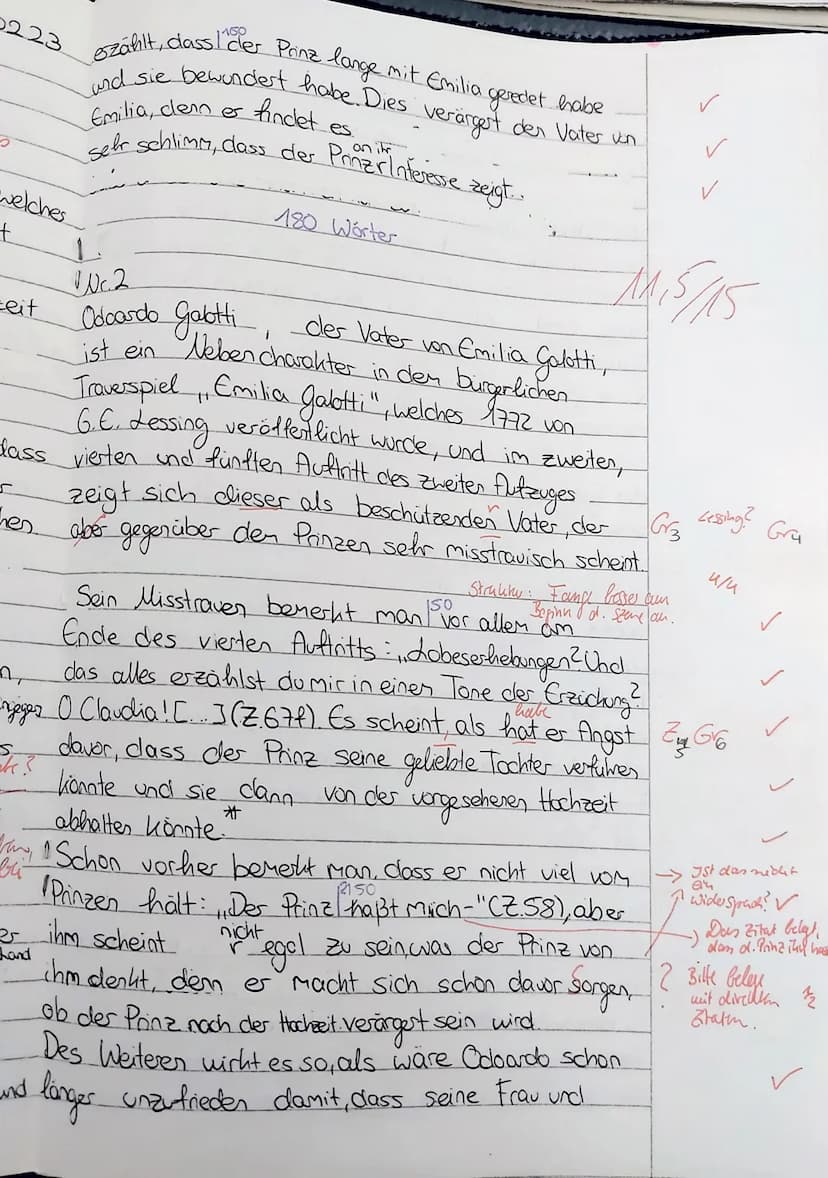 0223
150
erzählt, dass der Prinz lange mit Emilia geredet habe
und sie bewundert habe. Dies verärgert den Vater von
Emilia, denn er findet es
sehr schlimm, dass der Prinz an ihr Interesse zeigt.
180 Wörter
11,5/15
Nr. 2
Odoardo Galotti, der Vater von Emilia Galotti,
ist ein Nebencharakter in dem bürgerlichen
Trauerspiel „Emilia Galotti", welches 1772 von
G.E. Lessing veröffentlicht wurde, und im zweiten,
vierten und fünften Auftritt des zweiten Aufzuges
zeigt sich dieser als beschützenden Vater, der
aber gegenüber dem Prinzen sehr misstrauisch scheint.
Gr3 Lessing? Gr4
4/4
Struktur: Fange besser am
Beginn d. Szene an.
Sein Misstrauen bemerkt man 50 vor allem am
Ende des vierten Auftritts: „Lobeserhebungen? Und
das alles erzählst du mir in einem Tone der Erzückung?
O Claudia! [...] (Z.67f). Es scheint, als hat er Angst
habe
Gr6
davor, dass der Prinz seine geliebte Tochter verführen
könnte und sie dann von der vorgesehenen Hochzeit
abhalten könnte.*
Schon vorher bemerkt man, dass er nicht viel vom
Prinzen hält: „Der Prinz haßt mich-" (Z.58), aber
ihm scheint nicht egal zu sein, was der Prinz von
ihm denkt, denn er macht sich schon davor Sorgen,
ob der Prinz nach der Hochzeit verärgert sein wird.
Des Weiteren wirkt es so, als wäre Odoardo schon
länger unzufrieden damit, dass seine Frau und
→ Ist das nicht
ein
Widerspruch?
Das Zitat belegt,
dass d. Prinz ihn
? Bitte belege
mit direkten
Zitaten.
1/2
welches
dass